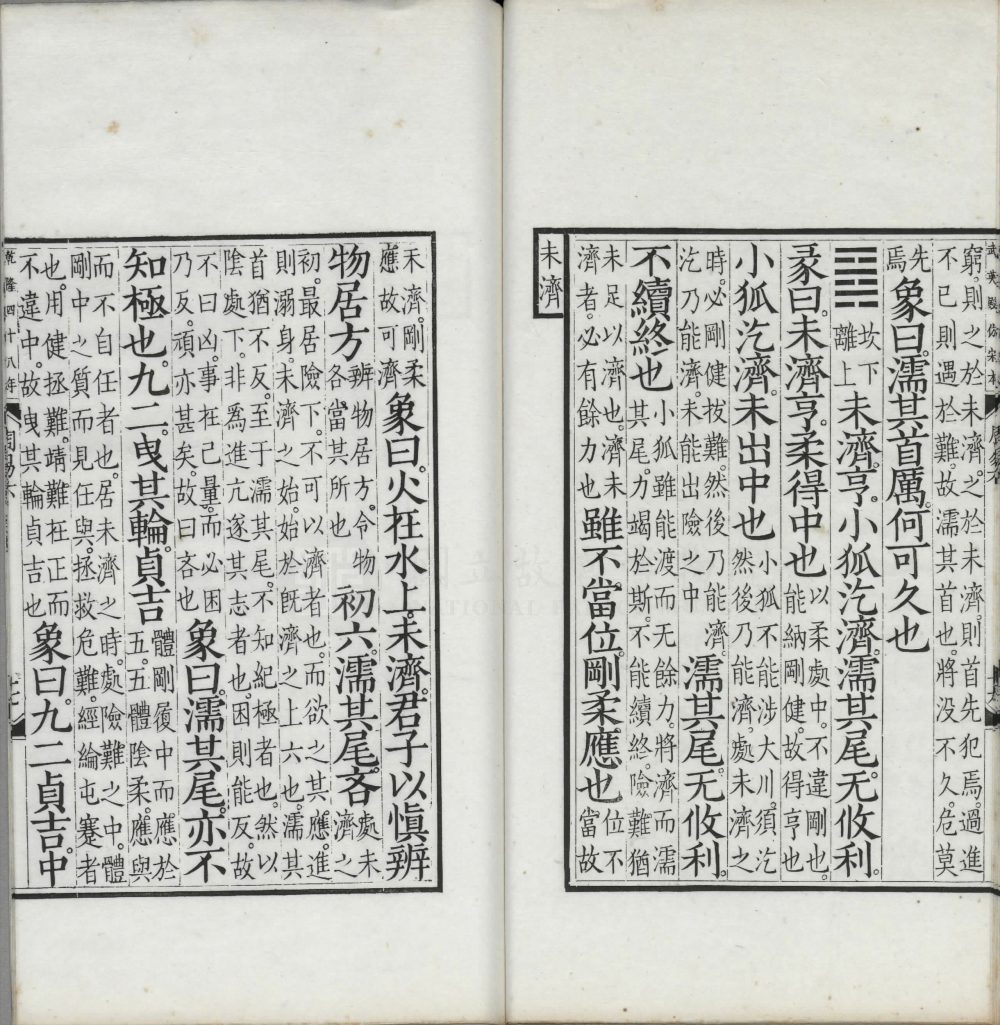 武英殿仿宋本
周易六
窮。則之於未濟。之於未濟。則首先犯焉。過進不已。則遇於難。故濡其首也。將没不久。危莫
先焉 象曰。濡其首厲。何可久也
䷿ 坎下離上 未濟。亨。小狐汔濟。濡其尾。无攸利。
彖曰。未濟亨。柔得中也 以柔處中。不違剛也。能納剛健。故得亨也
小狐汔濟。未出中也 小狐不能涉大川。須汔然後乃能濟。處未濟之
時。必剛健拔難。然後乃能濟。汔乃能濟。未能出險之中 濡其尾。无攸利。
不續終也 小狐雖能渡而无餘力。將濟而濡其尾。力竭於斯。不能續終。險難猶
未足以濟也。濟未濟者。必有餘力也 雖不當位。剛柔應也 位不當故
未濟
未濟。剛柔應。故可濟 象曰。火在水上。未濟。君子以慎辨
物居方 辨物居方。令物各當其所也 初六。濡其尾。吝 處未濟之
初。最居險下。不可以濟者也。而欲之其應。進則溺身。未濟之始。始於既濟之上六也。濡其
首猶不反。至于濡其尾。不知紀極者也。然以陰處下。非為進亢遂其志者也。困則能反。故
不曰凶。事在己量。而必困乃反。頑亦甚矣。故曰吝也 象曰。濡其尾。亦不
知極也。九二。曳其輪。貞吉 體剛履中而應於五。五體陰柔。應與
而不自任者也。居未濟之時。處險難之中。體剛中之質。而見任與。拯救危難。經綸屯蹇者
也。用健拯難。靖難在正而不違中。故曳其輪貞吉也 象曰。九二貞吉。中
乾隆四十八年
周易六